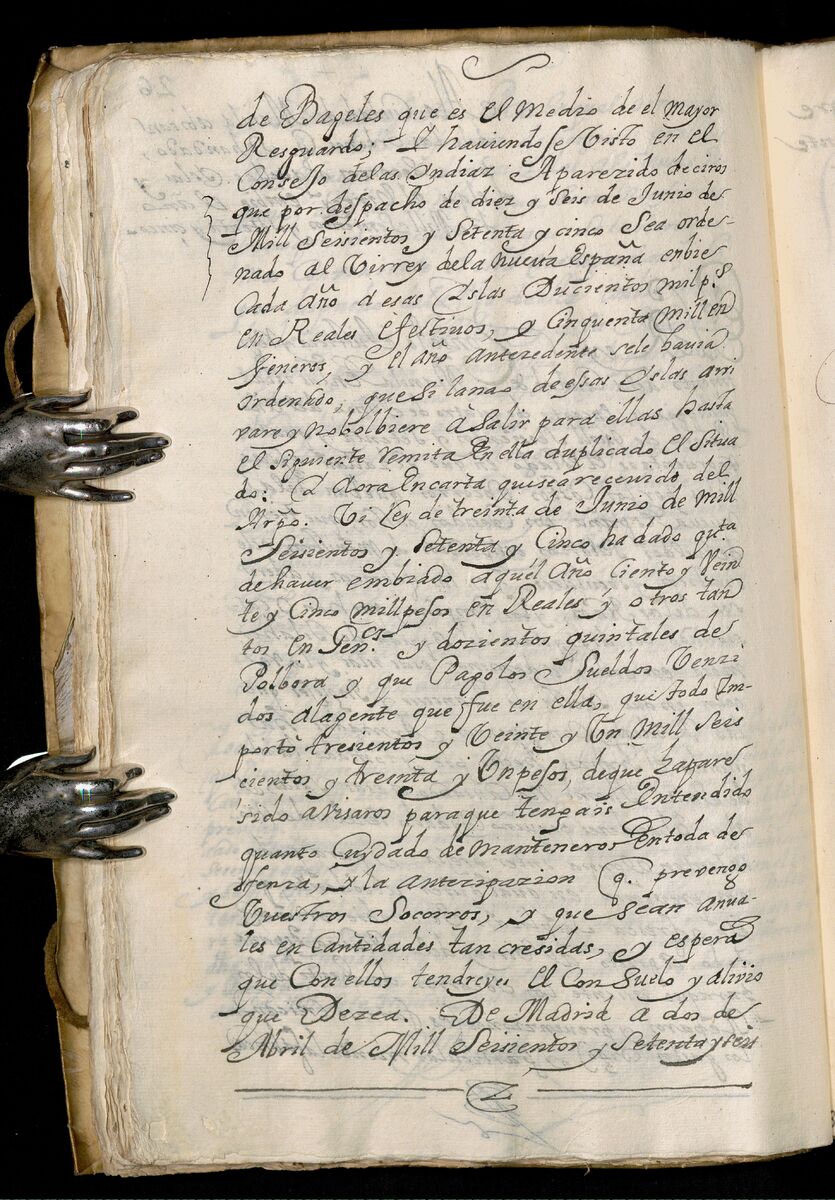 de Bageles que es el Medio de el mayor
Resguardo; Y haviendose Visto en el
Consejo delas Yndiaz Aparezido deciros
que por despacho de diez y seis de Junio de
Mill Seisientos y Setenta y cinco Sea orde-
nado al Virrey dela nueva España enbie
Cada Año a esas Yslas Ducientos mil p.s
en Reales efectivos, y Cinquenta mill en
Generos, y el año antezedente sele havia
ordenado, que si lanao de essas Yslas arri
vare y no bolbiere à Salir para ellas hasta
el Siguiente Remita En ella duplicado el Situa
do: Y Aora En carta que sea recevido del
Arpo. Vi Rey de treinta de Junio de Mill
Seisientos y Setenta y Cinco ha dado qta
de haver embiado aquel Año Ciento y Vein
te y Cinco mill pesos en Reales y otros tan
tos en Gen.os y dozientos quintales de
Polbora y que Pagolos Sueldos Venzi
dos alagente que fue en ella, que todo Im-
portò tresientos y Veinte y Un Mill seis
cientos y treinta y Un pesos, deque hapare
sido avisaros paraque tengais Entendido
quanto Cuydado de manteneros En toda de
ffenza, y la antezipazion q. prevengo
Vuestros Socorros, y que sean anua-
les en Cantidades tan cresidas, y espera
que Con ellos tendreys el Consuelo y alivio
que Dezea. De Madrid a dos de
Abril de Mill Seisientos y setenta y seis